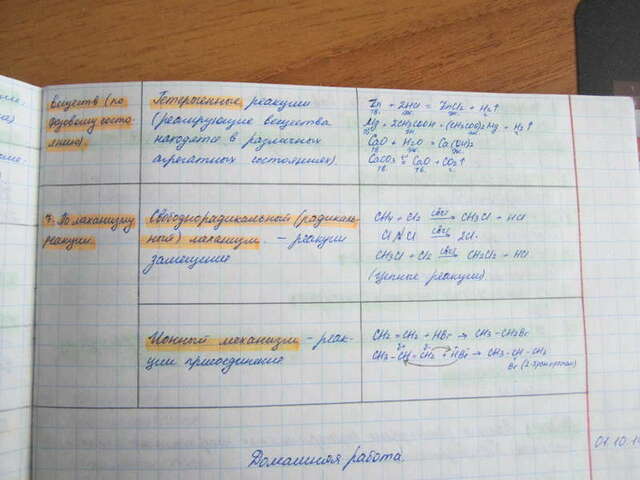 веществ (по
фазовому состо-
янию).
Гетерогенные реакции
(реагирующие вещества
находятся в различных
агрегатных состояниях).
Zn + 2HCl = ZnCl2 + H2↑
Mg + 2CH3COOH = (CH3COO)2Mg + H2↑
CaO + H2O = Ca(OH)2
CaCO3 = CaO + CO2↑
7. По механизму
реакции.
Свободнорадикальный (радикаль-
ный) механизм. – реакции
замещение
CH4 + Cl2 свет→ CH3Cl + HCl
Cl : Cl свет→ 2Cl·
CH3Cl + Cl2 свет→ CH2Cl2 + HCl
(цепные реакции)
Ионный механизм – реак-
ции присоединение
CH2 = CH2 + HBr → CH3 – CH2Br
CH3 – CH = CH2 + HBr → CH3 – CH – CH3
Br (2-бромпропан)
Домашняя работа.
01.10.1